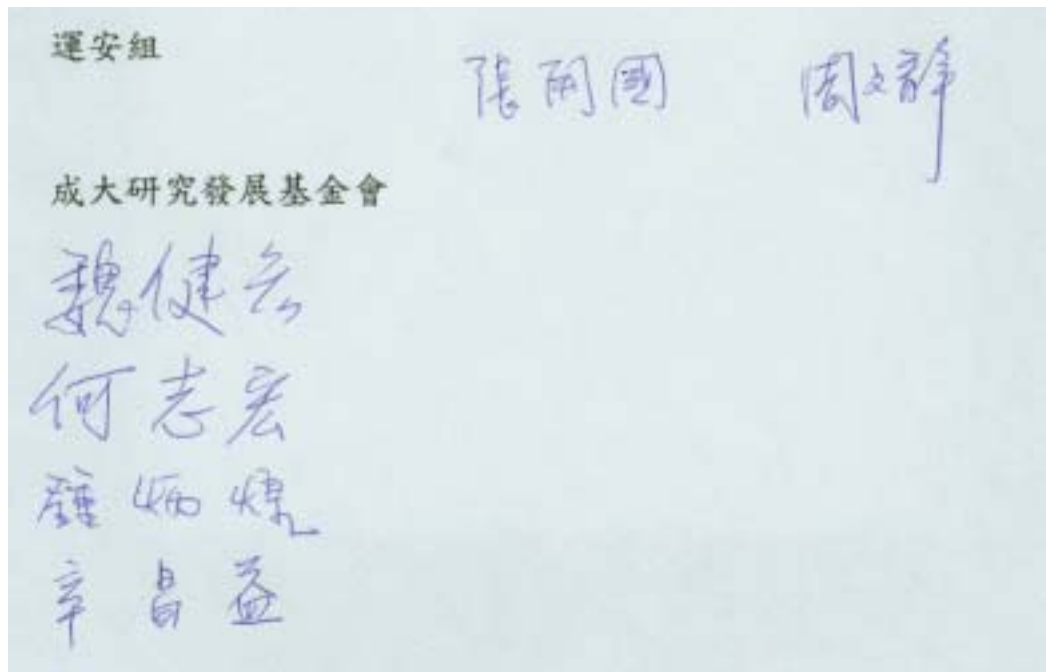 運安組
張開國 周文靜
成大研究發展基金會
魏健宏
何志宏
炳煌
辛昌益